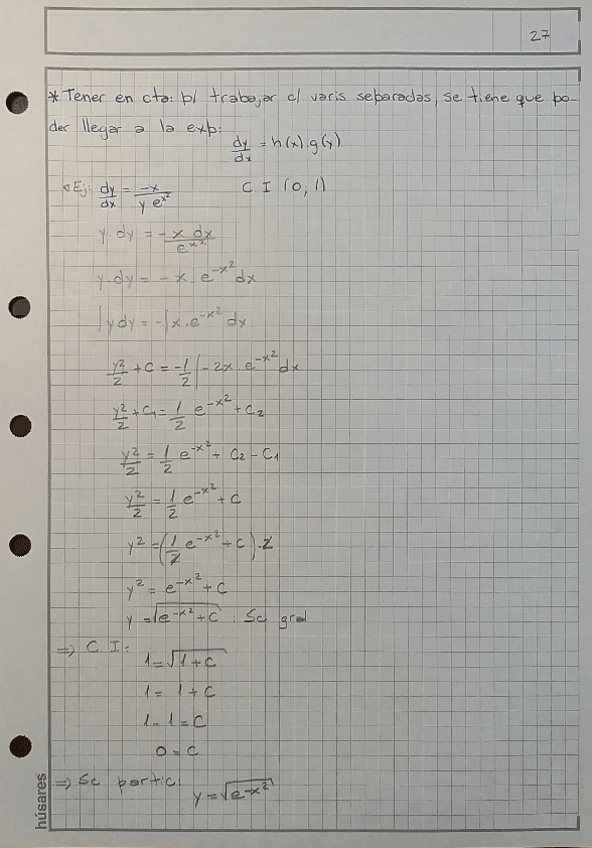 27
* Tener en cta: p/ trabajar c/ varis separadas, se tiene que po-
der llegar a la exp:
dy/dx = h(x).g(y)
Ej: dy/dx = -x/(y e^(x²))   C.I (0,1)
y.dy = -x dx/e^(x²)
y.dy = -x.e^(-x²) dx
∫y dy = -∫x.e^(-x²) dx
y²/2 + C = -1/2 ∫-2x e^(-x²) dx
y²/2 + C₁ = 1/2 e^(-x²) + C₂
y²/2 = 1/2 e^(-x²) + C₂ - C₁
y²/2 = 1/2 e^(-x²) + C
y² = (1/2 e^(-x²) + C).2
y² = e^(-x²) + C
y = √(e^(-x²) + C) : Sc gral
⇒ C.I:
1 = √(1 + C)
1 = 1 + C
1 - 1 = C
0 = C
⇒ Sc partic:
y = √(e^(-x²))
húsares